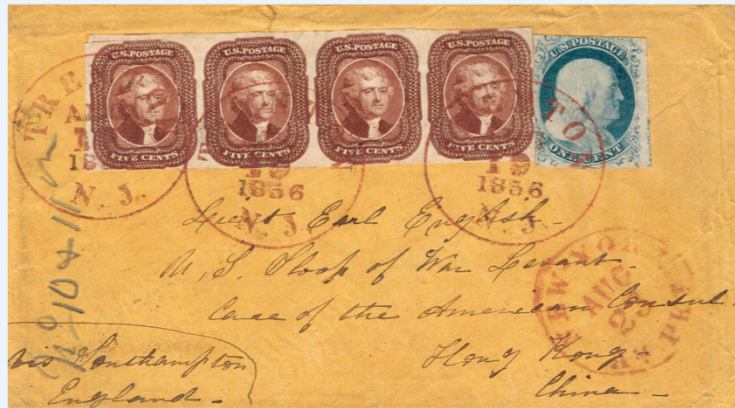 U.S. POSTAGE FIVE CENTS
U.S. POSTAGE FIVE CENTS
U.S. POSTAGE FIVE CENTS
U.S. POSTAGE FIVE CENTS
U.S. POSTAGE ONE CENT
N.J.
19
1856
N.J.
19
1856
N.J.
Lieut Earl English
U. S. Sloop of War Levant
Care of the American Consul
Hong Kong
China
via Southampton
England
NEW YORK
AUG
AM. PKT.